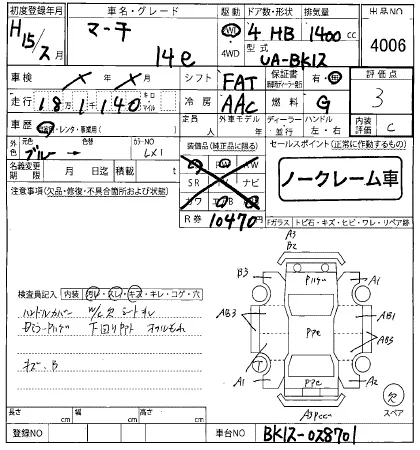 初度登録年月 車名・グレード 駆動 ドア数・形状 排気量 出品NO
H15/2月 マーチ 14e 2WD 4WD 4 HB 1400cc 4006
型式 UA-BK12
車検 年 月 シフト FAT 保証書 有・無 評価点 3
走行 18万1千140 キロ・マイル 冷房 AAC 燃料 G
車歴 自家用・レンタ・事業用( ) 定員 人 外車モデル 年 ディーラー・並行 ハンドル 左・右 内装評価 C
外色 元色 ブルー 色替 カラーNO LX1 装備品(純正品に限る) セールスポイント(正常に作動するもの)
名義変更期限 月 日迄 積載 t SR ナビ ノークレーム車
注意事項(欠品・修復・不具合箇所および状態) カワ
R券 10470円 Fガラス トビ石・キズ・ヒビ・ワレ・リペア跡
A3
B2
B3 A1
検査員記入 内装 キレ・コゲ・穴
ハンドルカバー シート
下回りサビ オイルもれ
キズ、B
AB3 AB1
ABS
A1 A2
スペア
長さ cm 幅 cm 高さ cm
登録NO 車台NO BK12-028701